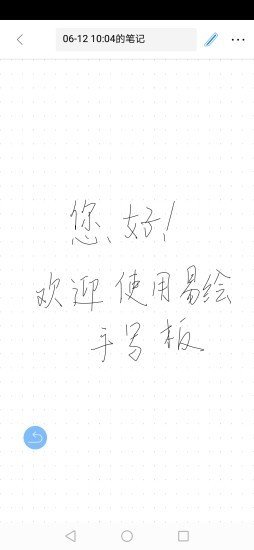 06-12 10:04的笔记
您、好！
欢迎使用易绘
手写板